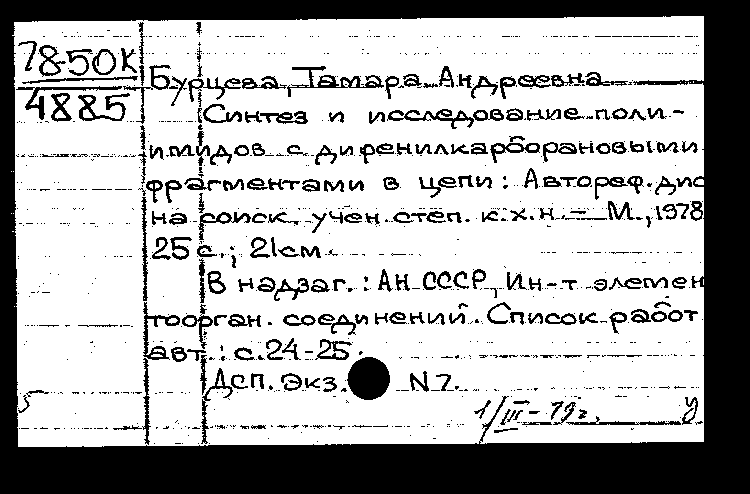 78-50К
4885
Бурцева, Тамара Андреевна
Синтез и исследование поли-
имидов с дифенилкарборановыми
фрагментами в цепи: Автореф. дис
на соиск. учен. степ. к. х. н. – М., 1978
25 с.; 21 см.
В надзаг.: АН СССР, Ин-т элемен
тоорган. соединений. Список работ
авт.: с. 24-25.
ДСП. Экз. N 7.
5
1/III - 79 г. У